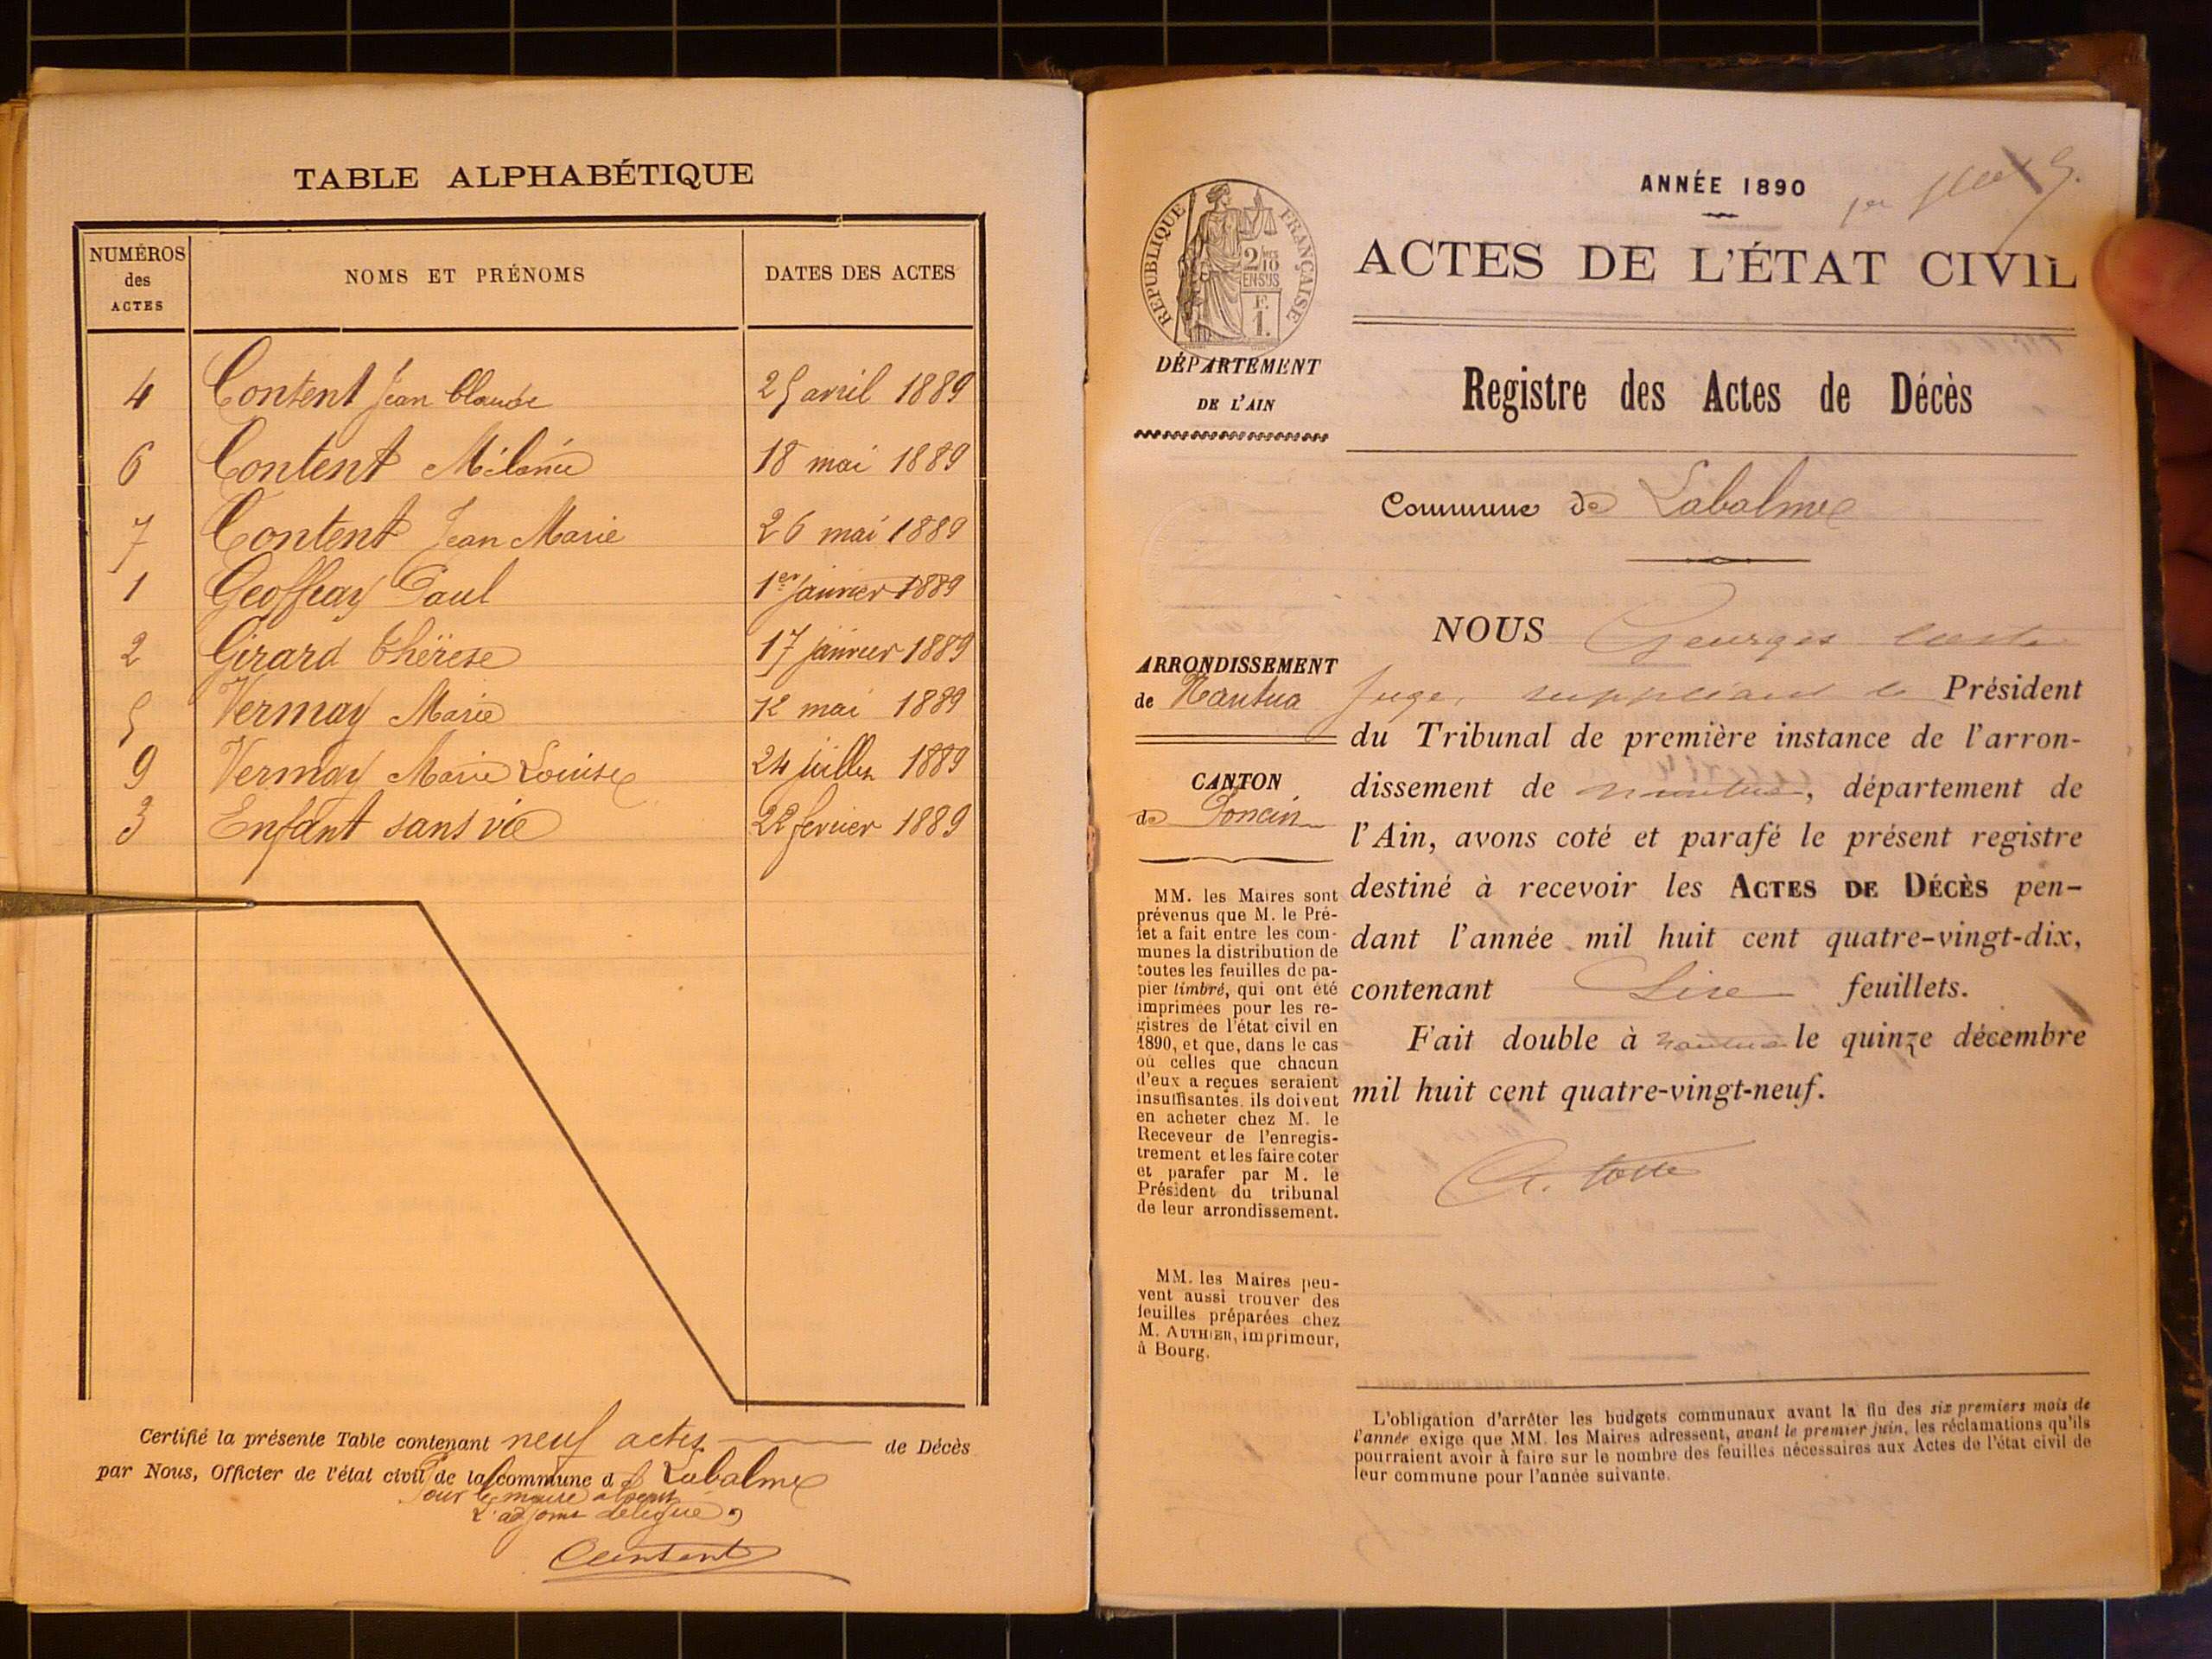 TABLE ALPHABÉTIQUE
NUMÉROS des ACTES NOMS ET PRÉNOMS DATES DES ACTES
4 Content Jean Claude 25 avril 1889
6 Content Mélanie 18 mai 1889
7 Content Jean Marie 26 mai 1889
1 Geoffray Paul 1er janvier 1889
2 Girard Thérèse 17 janvier 1889
5 Vermay Marie 12 mai 1889
9 Vermay Marie Louise 24 juillet 1889
3 Enfant sans vie 22 fevrier 1889
Certifié la présente Table contenant neuf actes de Décès
par Nous, Officier de l'état civil de la commune d e Labalme
Pour le maire absent
L'adjoint délégué,
Content
ANNÉE 1890
1er
RÉPUBLIQUE FRANÇAISE
2/10
EN SUS
F.
1.
ACTES DE L'ÉTAT CIVIL
DÉPARTEMENT
DE L'AIN
Registre des Actes de Décès
Commune de Labalme
ARRONDISSEMENT
de Nantua
CANTON
de Poncin
MM. les Maires sont
prévenus que M. le Pré-
fet a fait entre les com-
munes la distribution de
toutes les feuilles de pa-
pier timbré, qui ont été
imprimées pour les re-
gistres de l'état civil en
1890, et que, dans le cas
où celles que chacun
d'eux a reçues seraient
insuffisantes, ils doivent
en acheter chez M. le
Receveur de l'enregis-
trement et les faire coter
et parafer par M. le
Président du tribunal
de leur arrondissement.
MM. les Maires peu-
vent aussi trouver des
feuilles préparées chez
M. AUTHIER, imprimeur,
à Bourg.
NOUS Georges
Juge, suppléant le Président
du Tribunal de première instance de l'arron-
dissement de Nantua, département de
l'Ain, avons coté et parafé le présent registre
destiné à recevoir les ACTES DE DÉCÈS pen-
dant l'année mil huit cent quatre-vingt-dix,
contenant feuillets.
Fait double à Nantua le quinze décembre
mil huit cent quatre-vingt-neuf.
L'obligation d'arrêter les budgets communaux avant la fin des six premiers mois de
l'année exige que MM. les Maires adressent, avant le premier juin, les réclamations qu'ils
pourraient avoir à faire sur le nombre des feuilles nécessaires aux Actes de l'état civil de
leur commune pour l'année suivante.